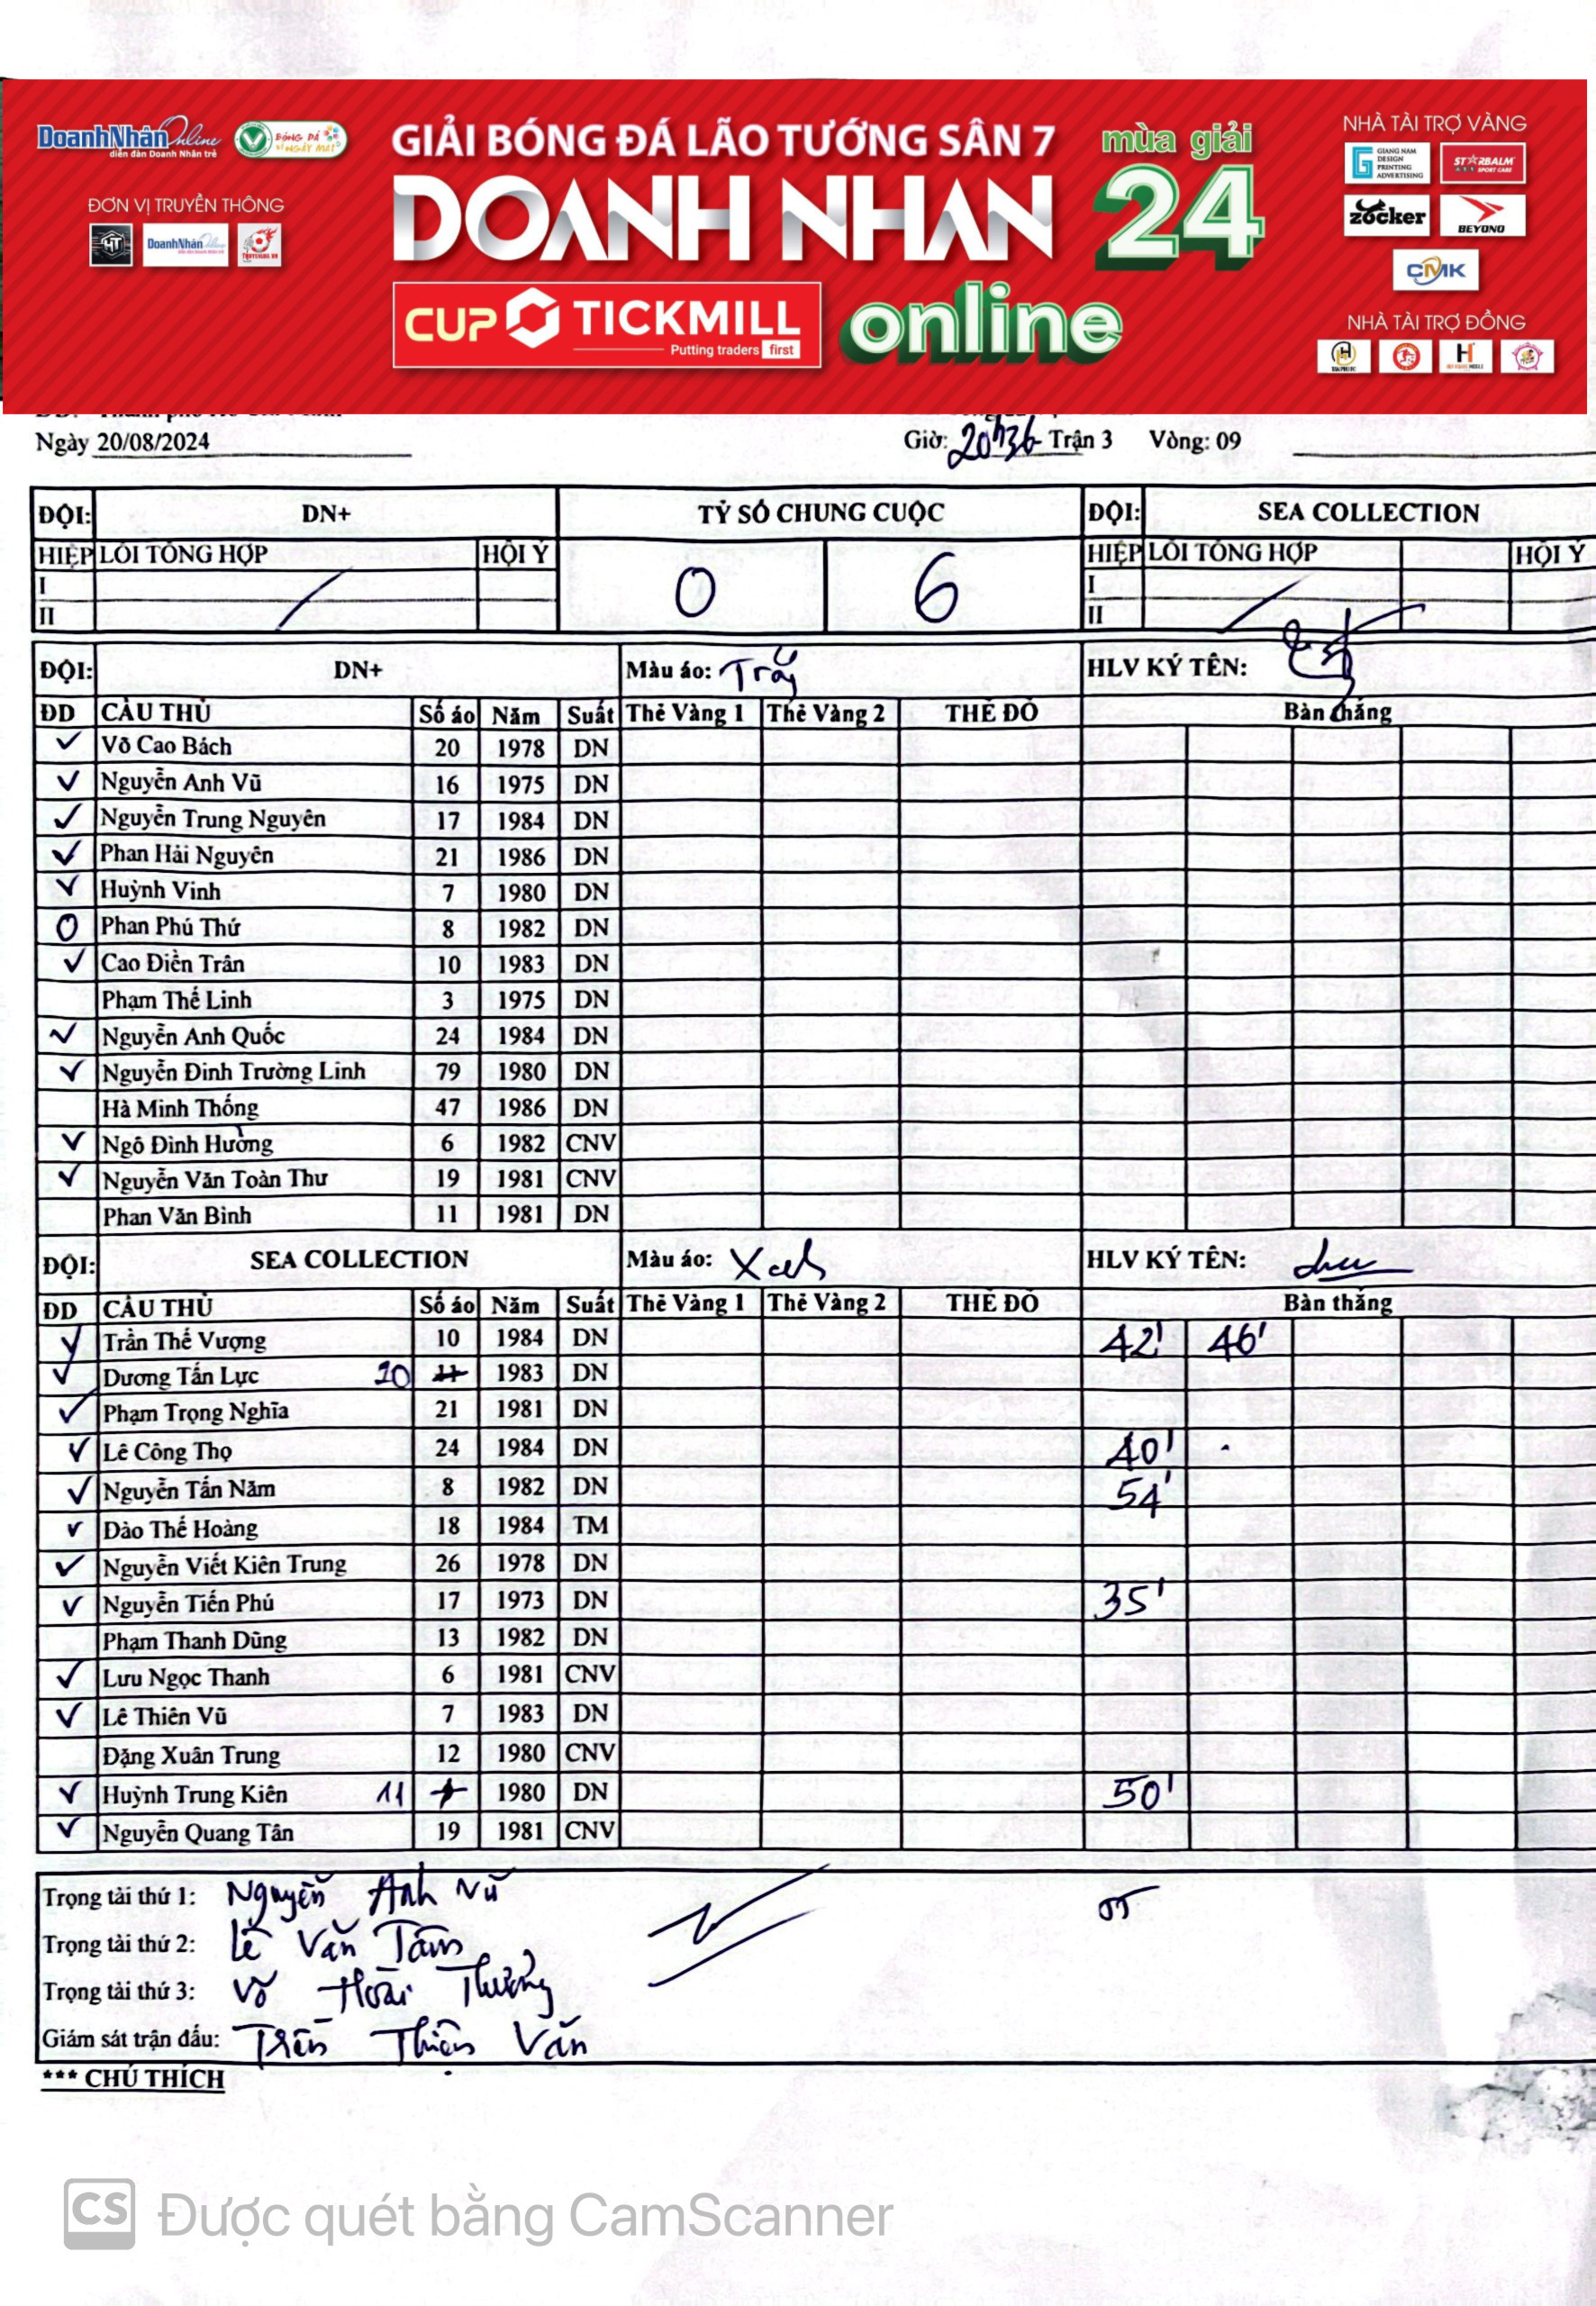 DoanhNhân Online
diễn đàn Doanh Nhân trẻ
ĐƠN VỊ TRUYỀN THÔNG
HT DoanhNhân
GIẢI BÓNG ĐÁ LÃO TƯỚNG SÂN 7
DOANH NHAN
mùa giải
24
online
CUP TICKMILL
Putting traders first
NHÀ TÀI TRỢ VÀNG
GIANG NAM DESIGN PRINTING ADVERTISING
STARBALM SPORT CARE
zocker BEYONO
CMK
NHÀ TÀI TRỢ ĐỒNG
Ngày 20/08/2024 Giờ: 20h36 Trận 3 Vòng: 09
ĐỘI: DN+ TỶ SỐ CHUNG CUỘC ĐỘI: SEA COLLECTION
HIỆP LỖI TỔNG HỢP HỘI Ý 0 6 HIỆP LỖI TỔNG HỢP HỘI Ý
I I
II II
ĐỘI: DN+ Màu áo: Trắng HLV KÝ TÊN:
ĐD CẦU THỦ Số áo Năm Suất Thẻ Vàng 1 Thẻ Vàng 2 THẺ ĐỎ Bàn thắng
Võ Cao Bách 20 1978 DN
Nguyễn Anh Vũ 16 1975 DN
Nguyễn Trung Nguyên 17 1984 DN
Phan Hải Nguyên 21 1986 DN
Huỳnh Vinh 7 1980 DN
O Phan Phú Thứ 8 1982 DN
Cao Điền Trân 10 1983 DN
Phạm Thế Linh 3 1975 DN
Nguyễn Anh Quốc 24 1984 DN
Nguyễn Đinh Trường Linh 79 1980 DN
Hà Minh Thống 47 1986 DN
Ngô Đình Hưởng 6 1982 CNV
Nguyễn Văn Toàn Thư 19 1981 CNV
Phan Văn Bình 11 1981 DN
ĐỘI: SEA COLLECTION Màu áo: Xanh HLV KÝ TÊN:
ĐD CẦU THỦ Số áo Năm Suất Thẻ Vàng 1 Thẻ Vàng 2 THẺ ĐỎ Bàn thắng
Trần Thế Vượng 10 1984 DN 42' 46'
Dương Tấn Lực 20 11 1983 DN
Phạm Trọng Nghĩa 21 1981 DN
Lê Công Thọ 24 1984 DN 40'
Nguyễn Tấn Năm 8 1982 DN 54'
Đào Thế Hoàng 18 1984 TM
Nguyễn Viết Kiên Trung 26 1978 DN
Nguyễn Tiến Phú 17 1973 DN 35'
Phạm Thanh Dũng 13 1982 DN
Lưu Ngọc Thanh 6 1981 CNV
Lê Thiên Vũ 7 1983 DN
Đặng Xuân Trung 12 1980 CNV
Huỳnh Trung Kiên 11 1980 DN 50'
Nguyễn Quang Tân 19 1981 CNV
Trọng tài thứ 1: Nguyễn Anh Vũ
Trọng tài thứ 2: Lê Văn Tâm
Trọng tài thứ 3: Võ Hoài Thương
Giám sát trận đấu: Trần Thiện Văn
*** CHÚ THÍCH
CS Được quét bằng CamScanner